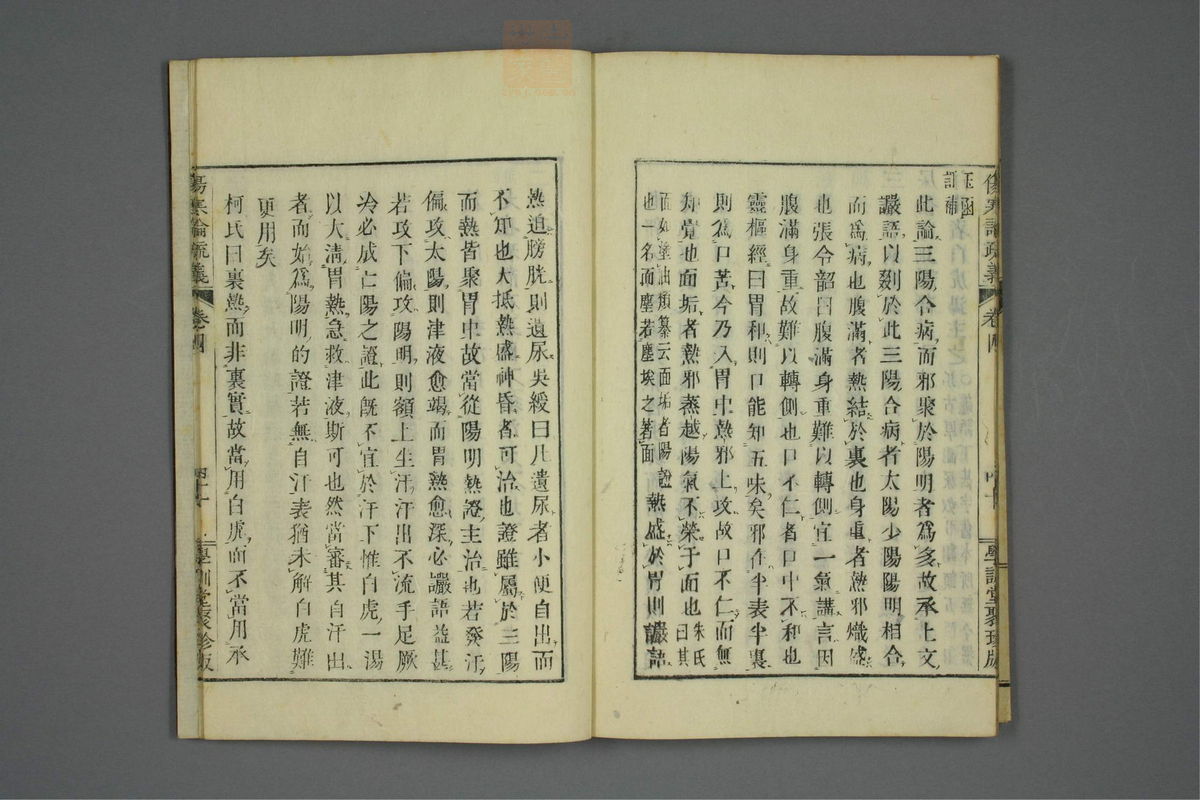 玉函
此論三陽合病而邪聚於陽明者為多故承上文
讝語以剟於此三陽合病者太陽少陽陽明相合
而為病也腹滿者熱結於裏也身重者熱邪熾盛
也張令韶曰腹滿身重難以轉側宜一氣講言因
腹滿身重故難以轉側也口不仁者口中不和也
靈樞經曰胃和則口能知五味矣邪在半表半裏
則為口苦今乃入胃中熱邪上攻故口不仁而無
知覺也面垢者熱邪蒸越陽氣不榮于面也朱氏曰其
面如塗油類纂云面垢者陽證
也一名面塵若塵埃之著面
熱盛於胃則讝語
傷寒論疏義
卷四
學訓堂聚珍版
熱迫膀胱則遺尿吳綬曰凡遺尿者小便自出而
不知也大抵熱盛神昏者可治也證雖屬於三陽
而熱皆聚胃中故當從陽明熱證主治也若發汗
偏攻太陽則津液愈竭而胃熱愈深必讝語益甚
若攻下偏攻陽明則額上生汗汗出不流手足厥
冷必成亡陽之證此既不宜於汗下惟白虎一湯
以大清胃熱急救津液斯可也然當審其自汗出
者而始為陽明的證若無自汗表猶未解白虎難
更用矣
柯氏曰裏熱而非裏實故當用白虎而不當用承
傷寒論疏義
卷四
四十一
學訓堂聚珍版